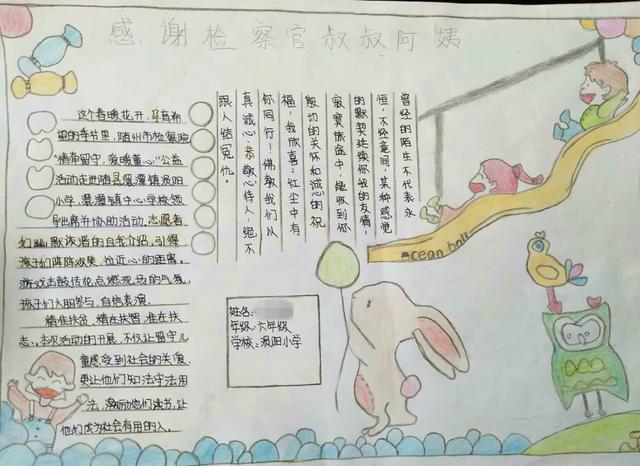 感谢检察官叔叔阿姨
这个春暖花开、草育布
迎的季节里，随州市检察院
"情牵留守，爱暖童心"公益
活动走进随县㵐潭镇浪阳
小学，㵐潭镇中心学校领
导出席并协助活动，志愿者
们幽默诙谐的自我介绍，引得
孩子们阵阵欢笑，拉近心的距离。
游戏击鼓传花点燃现场的气氛，
孩子们大胆参与，自信表演。
精准扶贫，精在扶智，准在扶
志。本次活动的开展，不仅让留守儿
童感受到社会的关爱，
更让他们知法守法用
法，激励他们读书，让
他们成为社会有用的人。
曾经的陌生不代表永
恒，不经意间，某种感觉
的默契延续你我的友情，
寂寞旅途中，能收到你
殷切的关怀和诚心的祝
福，我欣喜：红尘中有
你同行！佛教我们从
真诚心、恭敬心待人，绝不
跟人结冤仇。
姓名：
年级：六年级
学校：浪阳小学
ocean ball